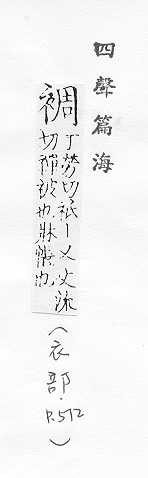 四聲篇海
裯
丁勞切衹丨又丈流
切襌被也牀帳也
(衣部.P.512)